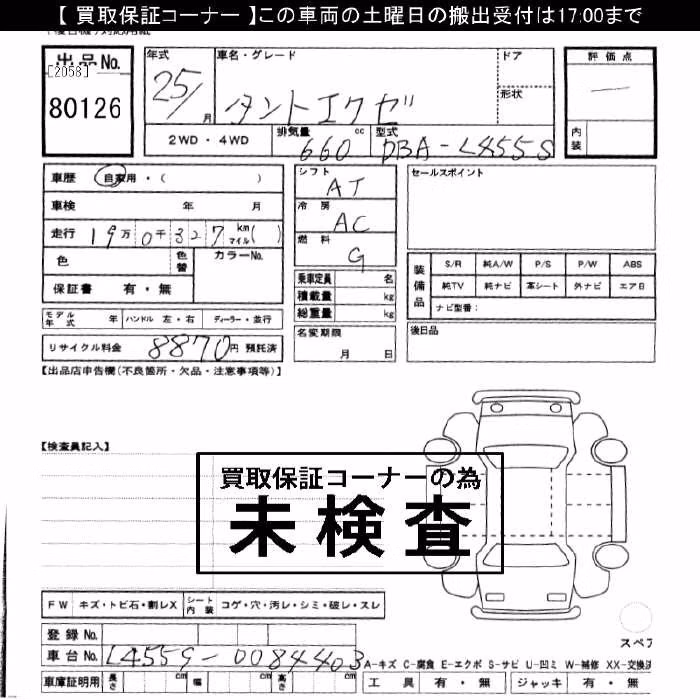 【 買取保証コーナー 】この車両の土曜日の搬出受付は17:00まで
出品No.
[2058]
80126
年式
25/
月
車名・グレード
タントエクゼ
ドア
形状
評価点
内装
2WD・4WD
排気量
660
cc
型式
DBA-L455S
車歴
自家用・(　　)
車検
年
月
走行
19万0千327
km
マイル( )
色
色替
カラーNo.
保証書
有・無
シフト
AT
冷房
AC
燃料
G
乗車定員
名
積載量
kg
総重量
kg
名変期限
月
日
セールスポイント
装備品
S/R
純A/W
P/S
P/W
ABS
純TV
純ナビ
革シート
外ナビ
エア日
ナビ型番:
後日品
モデル年式
年
ハンドル
左・右
ディーラー・並行
リサイクル料金
8870
円 預託済
【出品店申告欄(不良箇所・欠品・注意事項等)】
【検査員記入】
買取保証コーナーの為
未検査
FW
キズ・トビ石・割レX
シート内装
コゲ・穴・汚レ・シミ・破レ・スレ
登録 No.
車台 No.
L455S-0084403
車庫証明用
長さ
cm
幅
cm
高さ
cm
スペア
A-キズ C-腐食 E-エクボ S-サビ U-凹ミ W-補修 XX-交換済
工具
有・無
ジャッキ
有・無